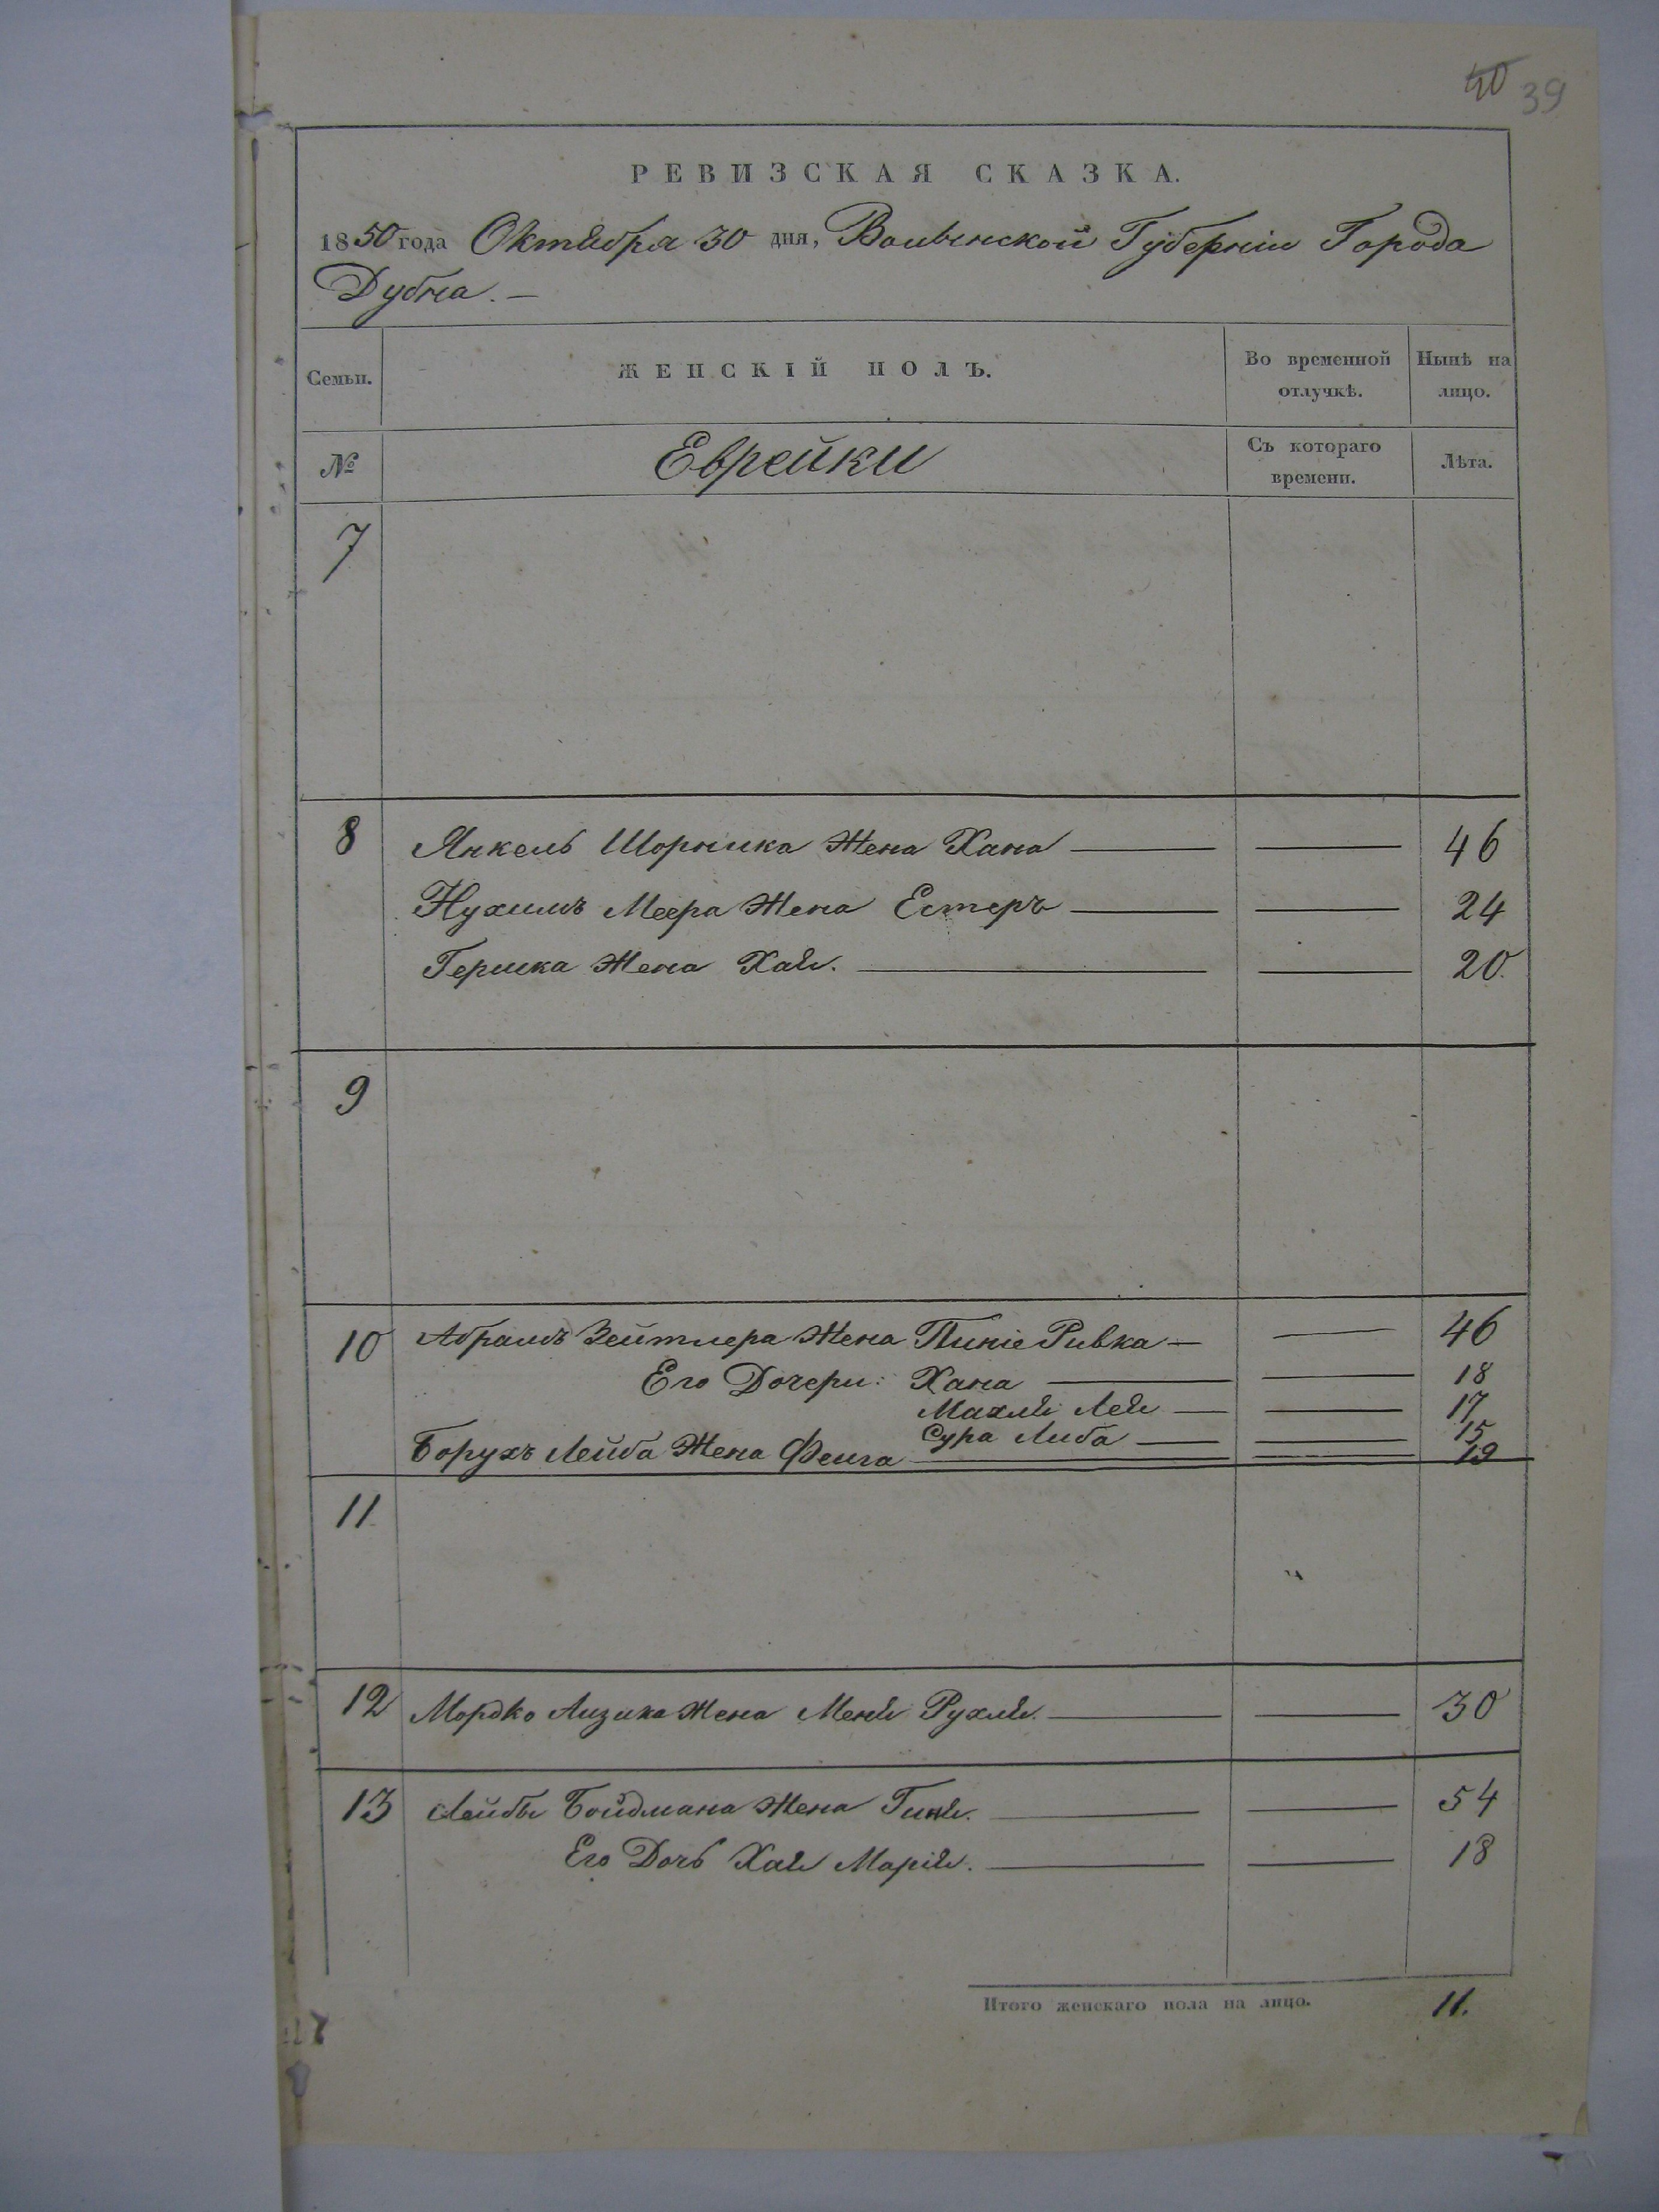 40 39
РЕВИЗСКАЯ СКАЗКА.
1850 года Октября 30 дня, Волынской Губерніи Города
Дубна. —
Семьи.
ЖЕНСКІЙ ПОЛЪ.
Во временной
отлучкѣ.
Нынѣ на
лицо.
№
Еврейки
Съ котораго
времени.
Лѣта.
7
8 Янкель Шорника Жена Хана — — 46
Нухимъ Меера Жена Естеръ — — 24
Гершка Жена Хая. — — 20.
9
10 Абрамъ Зейтлера Жена Пиніе Ривка — — 46
Его Дочери: Хана — — 18
Махля Лея — — 17
Сура Либа — — 15
Борухъ Лейба Жена Феига — — 19
11.
12 Мордко Аизика Жена Меня Рухля. — — 30
13 Лейбы Бойдмана Жена Гиня. — — 54
Его Дочь Хая Марія. — — 18
Итого женскаго пола на лицо. 11.